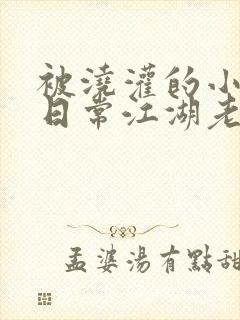 被澆灌的小
日常江湖老
孟婆湯有點甜